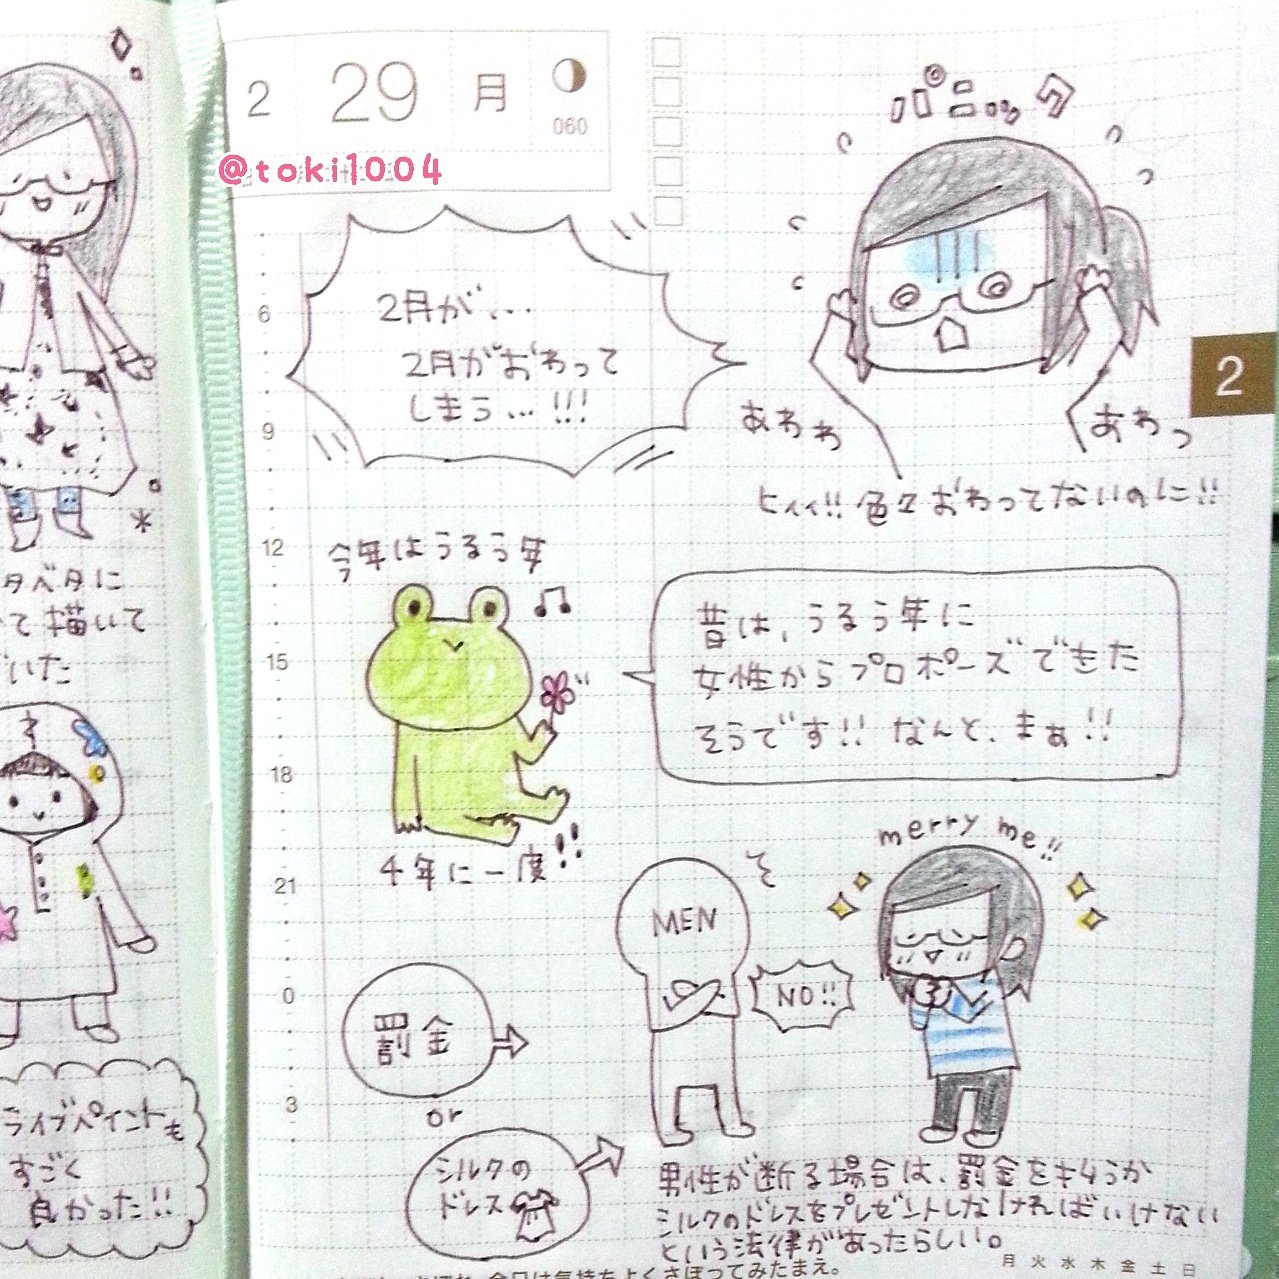 2 29 月
060
@toki1004
パニック
2月が...
2月がおわって
しまう...!!!
あわわ
あわっ
ヒィィ!!色々おわってないのに!!
2
6
9
12
15
18
21
0
3
今年はうるう年
4年に一度!!
昔は、うるう年に
女性からプロポーズでもた
そうです!! なんと、まぁ!!
merry me!!
MEN
そ
NO!!
罰金
or
シルクの
ドレス
男性が断る場合は、罰金をキ4うか
シルクのドレスをプレゼントしなければいけない
という法律があったらしい。
月 火 水 木 金 土 日
今日は気持ちよくさぼってみたまえ。
タベタに
て描いて
いた
ライブペイントも
すごく
良かった!!